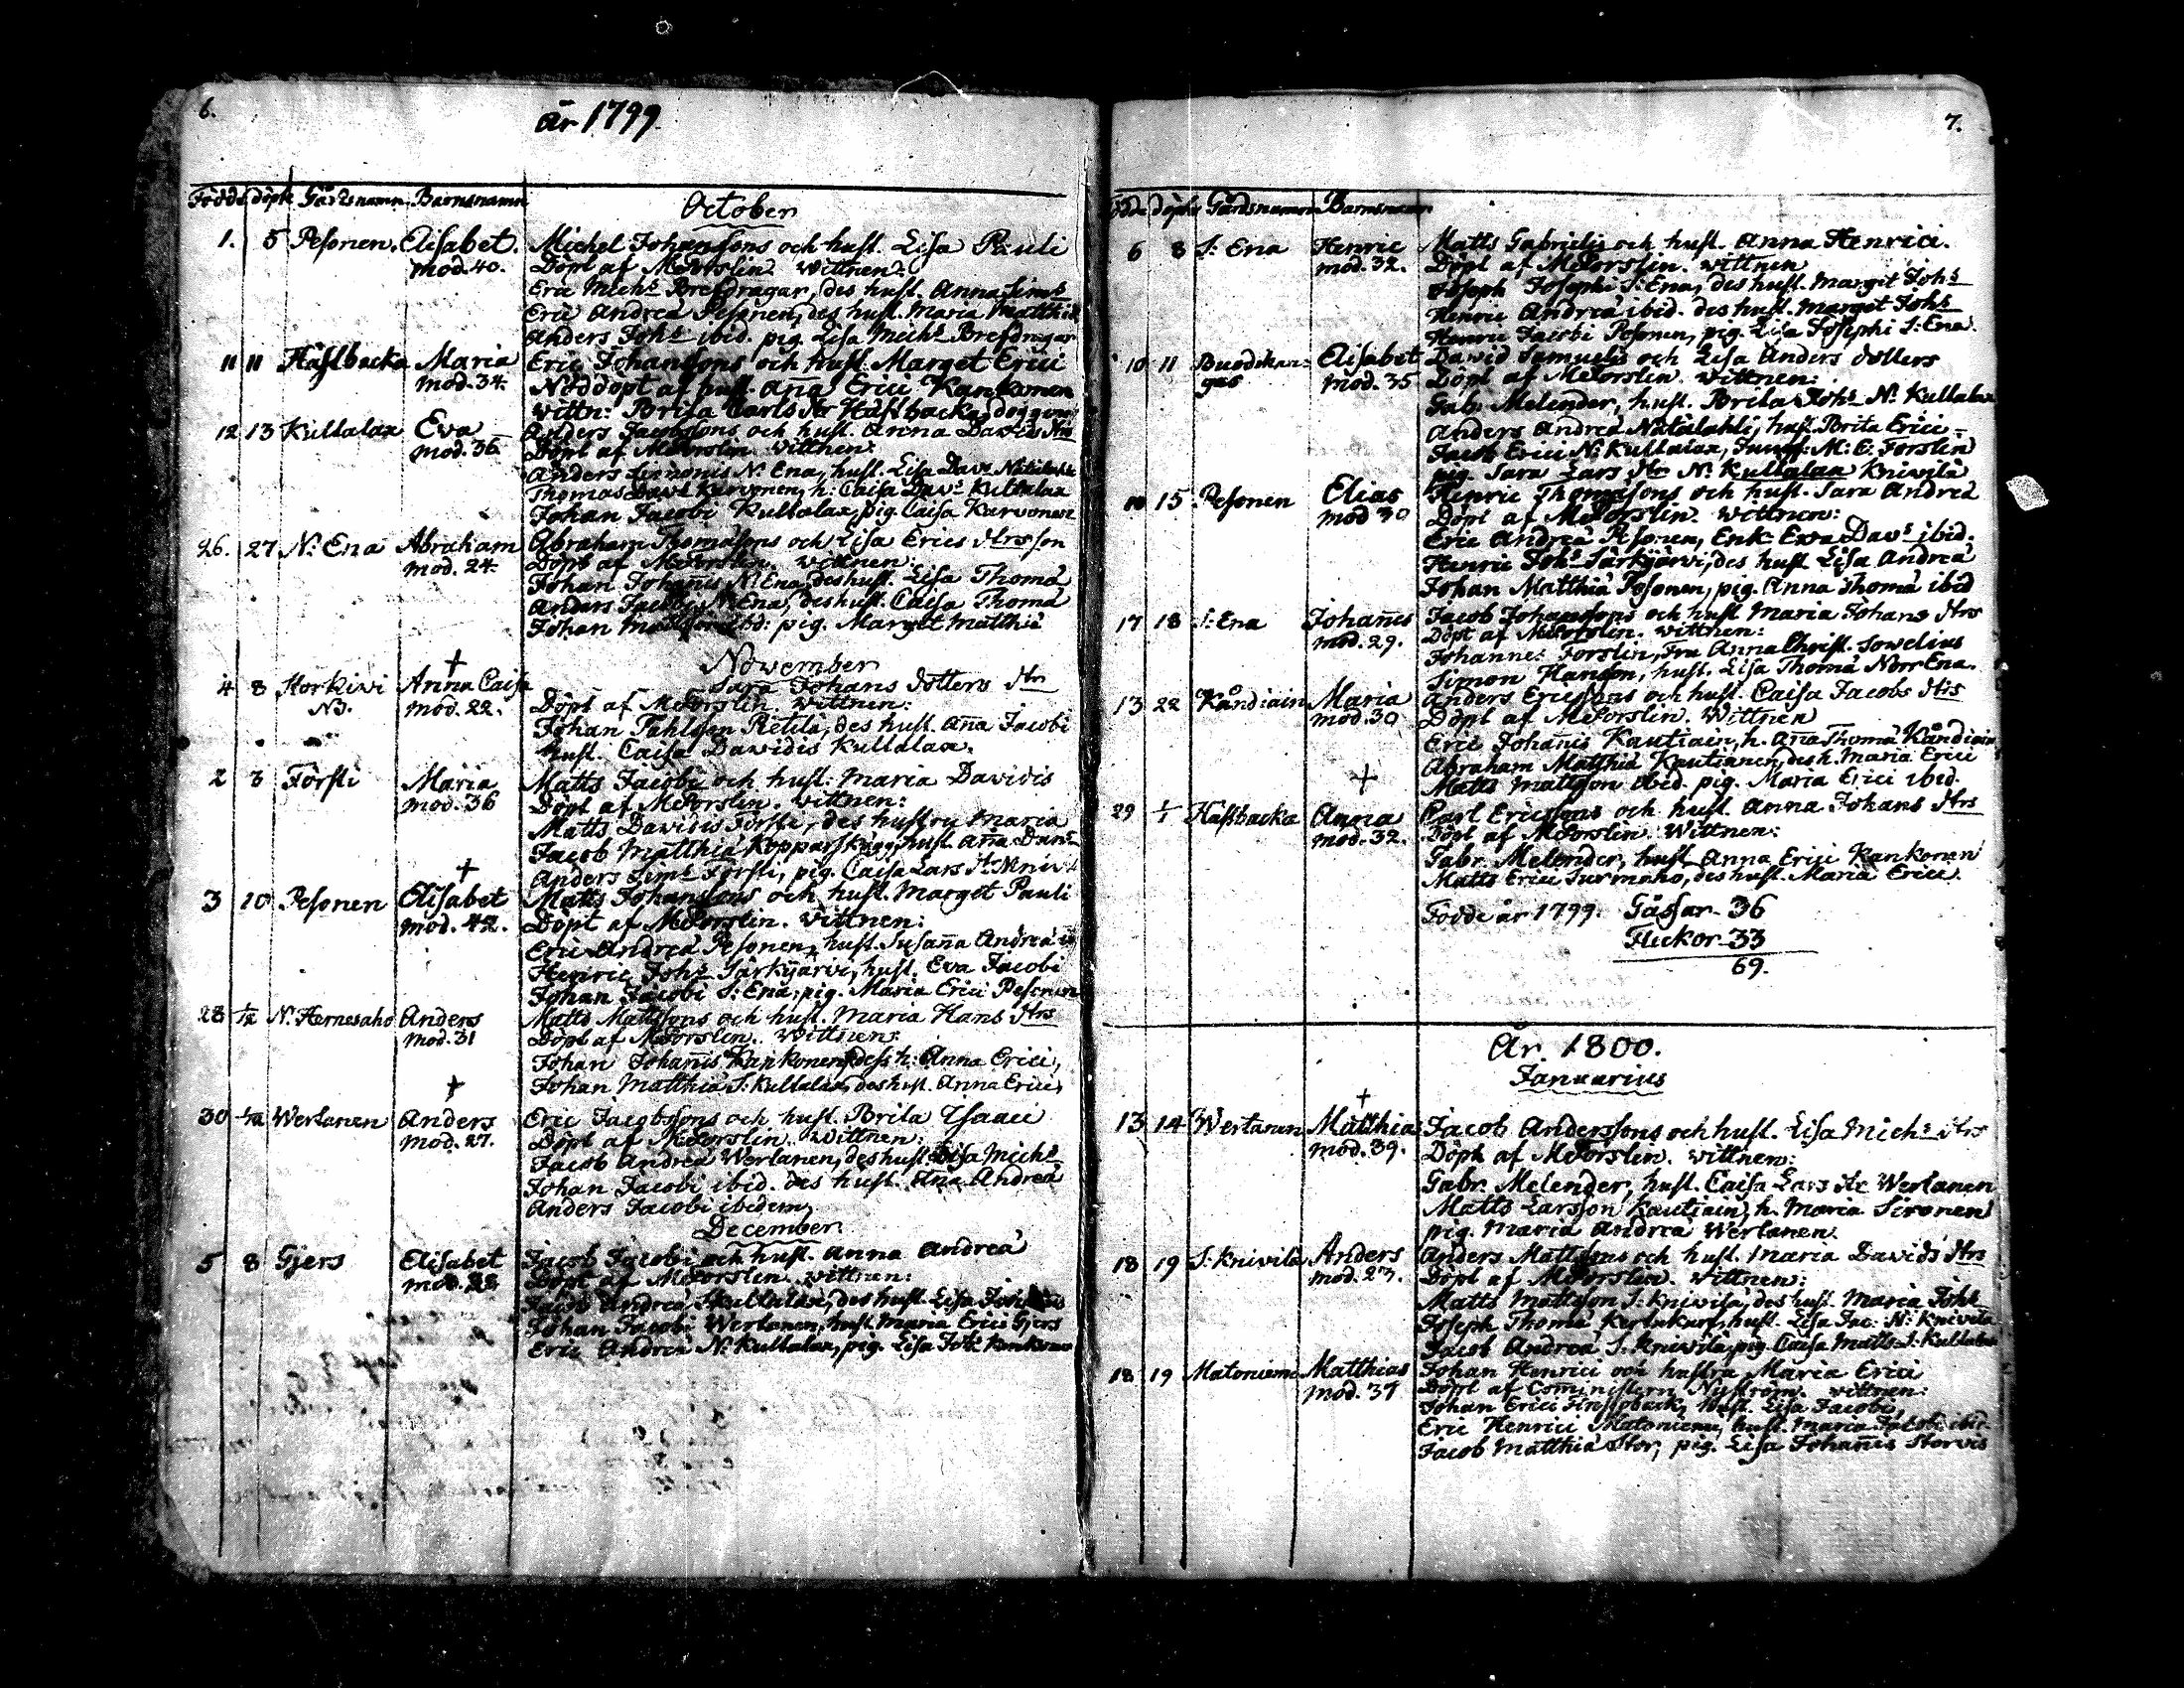 6.
år 1799.
Födde döpte Gårdsnamn Barnsnamn
October
1. 5 Pesonen. Elisabet. Michel Johanssons och hust. Lisa Pauli
mod. 40. Döpt af M Forslin. wittnen:
Eric Mich: Brefdragar, des hust. Anna Sim:
Eric Andreä Pesonen, des hust. Maria Matthiä
Anders Joh: ibid. pig. Lisa Mich: Brefdragar
11 11 Hästbacka Maria Eric Johanssons och hust. Marget Erici
mod. 34. Nöddöpt af hust. Aña Erici Kankonen
wittn: Brita Carls dtr Hästbacka
12 13 Kullalax Eva Anders Jacobssons och hust. Anna Davids dtrs
mod. 36 Döpt af M Forslin. wittnen:
Anders Simonis N: Ena, hust. Lisa Dav:
Thomas Davi Karvonen, h: Caisa Dav: Kullalax
Johan Jacobi Kullalax, pig Caisa Karvonen
26. 27 N: Ena Abraham Abraham Thomassons och Lisa Erics dtrs son
mod. 24. Döpt af M Forslin. wittnen:
Johan Johanis N: Ena, des hust. Lisa Thomä
Anders Jacobi N: Ena, des hust. Caisa Thomä
Johan ibd: pig. Marget Matthiä
November
4 8 Storkivi Anna Caisa Sara Johans dotters dtr
N3. mod. 22. Döpt af M Forslin. wittnen:
Johan Fahlgen Rietilä, des hust. Aña Jacobi
hust. Caisa Davidis Kullalax.
2 3 Försti Maria Matts Jacobi och hust: Maria Davidis
mod. 36 Döpt af M Forslin. wittnen:
Matts Davidis Försti, des hustru Maria
Jacob Matthiä Kopparskägg, hust. Aña
Anders Sim: Försti, pig. Caisa Lars dtr
3 10 Pesonen Elisabet Matts Johanssons och hust. Marget Pauli
mod. 42. Döpt af M Forslin. wittnen:
Eric Andreä Pesonen, hust. Susaña Andreä
Henric Joh: Särkijärvi, hust. Eva Jacobi
Johan Jacobi S: Ena, pig. Maria Erici Pesonen
28 1/12 N: Hernesaho Anders Matts Mattssons och hust. Maria Hans dtrs
mod. 31 Döpt af M Forslin. wittnen:
Johan Johañis Kankonen, dess h: Anna Erici,
Johan Matthiä S: Kullalax, des hust. Anna Erici,
30 1/12 Wertanen Anders Eric Jacobssons och hust. Brita Isaaci
mod. 27. Döpt af M Forslin. wittnen:
Jacob Andreä Wertanen, des hust. Lisa Mich:
Johan Jacobi ibid. des hust. Aña Andreä
Anders Jacobi ibidem,
December
5 8 Gjers Elisabet Jacob Jacobi och hust. Anna Andreä
mod. 28 Döpt af M Forslin. wittnen:
Jacob Andreä Kullalax, des hust. Lisa
Johan Jacobi Wertanen, hust. Maria Erici Gjers
Eric Andreä N: Kullalax, pig. Lisa Joh: Kankonen
7.
Födde döpte Gårdsnamn Barnsnamn
6 8 S: Ena Henric Matts Gabrielis och hust. Anna Henrici.
mod. 32. Döpt af M Forslin. wittnen
Joseph Josephi S: Ena, des hust. Margit Joh:
Henric Andreä ibid. des hust. Marget Joh:
Henric Jacobi Pesonen, pig. Lisa Josephi S: Ena.
10 11 Buodikan= Elisabet David Samuelis och Lisa Anders dotters
gas mod. 35 Döpt af M Forslin. wittnen:
Gab: Melender, hust. Brita Joh: N: Kullalax
Anders Andreä Nätilahti, hust. Brita Erici
Jacob Erici N: Kullalax, M: C: Forslin
pig. Sara Lars dtr N: Kullalax Knivilä
10 15 Pesonen Elias Henric Thomassons och hust. Sara Andreä
mod 30 Döpt af M Forslin. wittnen:
Eric Andreä Pesonen, Enk: Eva Dav: ibid.
Henric Joh: Särkijärvi, des hust Lisa Andreä
Johan Matthiä Pesonen, pig. Anna Thomä ibid
17 18 S: Ena Johañes Jacob Johanssons och hust Maria Johans dtrs
mod. 29. Döpt af M Forslin. wittnen:
Johannes Forslin, Fru Anna Christ. Sowelius
Simon Hansson, hust. Lisa Thomä Norr Ena.
13 22 Kåndiain Maria Anders Ericssons och hust. Caisa Jacobs dtrs
mod. 30 Döpt af M Forslin. Wittnen
Eric Johañis Kautiain, h. Aña Thomä Kåndiain,
Abraham Matthiä Kautianen, des h. Maria Erici
Matts Mattsson ibid. pig. Maria Erici ibid.
29 1/1 Hästbacka Anna Carl Ericssons och hust. Anna Johans dtrs
mod. 32. Döpt af M Forslin. Wittnen:
Gabr. Melender, hust. Anna Erici Kankonen
Matts Erici Surmaho, des hust. Maria Erici.
Födde år 1799. Gåssar - 36
Flickor - 33
69.
År. 1800.
Januarius
13 14 Wertanen Matthias Jacob Anderssons och hust. Lisa Mich: dtrs
mod. 39. Döpt af M Forslin. wittnen:
Gabr. Melender, hust. Caisa Lars dtr Wertanen
Matts Larsson Kautiain, h. Maria Sironen
pig. Maria Andreä Wertanen.
18 19 S: Knivilä Anders Anders Mattssons och hust. Maria Davids dtrs
mod. 23. Döpt af M Forslin. wittnen:
Matts Mattsson S: Knivilä, des hust. Maria Joh:
Joseph Thomä hust. Lisa Jac: N: Knivilä
Jacob Andreä S. Knivilä, pig. Caisa Matts S: Kullalax
18 19 Matoniemi Matthias Johan Henrici och hustru Maria Erici
mod. 37 Döpt af Comministern Nyström. wittnen:
Johan Erici hust. Lisa Jacobi,
Eric Henrici Matoniemi, hust. Maria Jacobi ibid.
Jacob Matthiä Stor, pig. Lisa Johañis Storvis